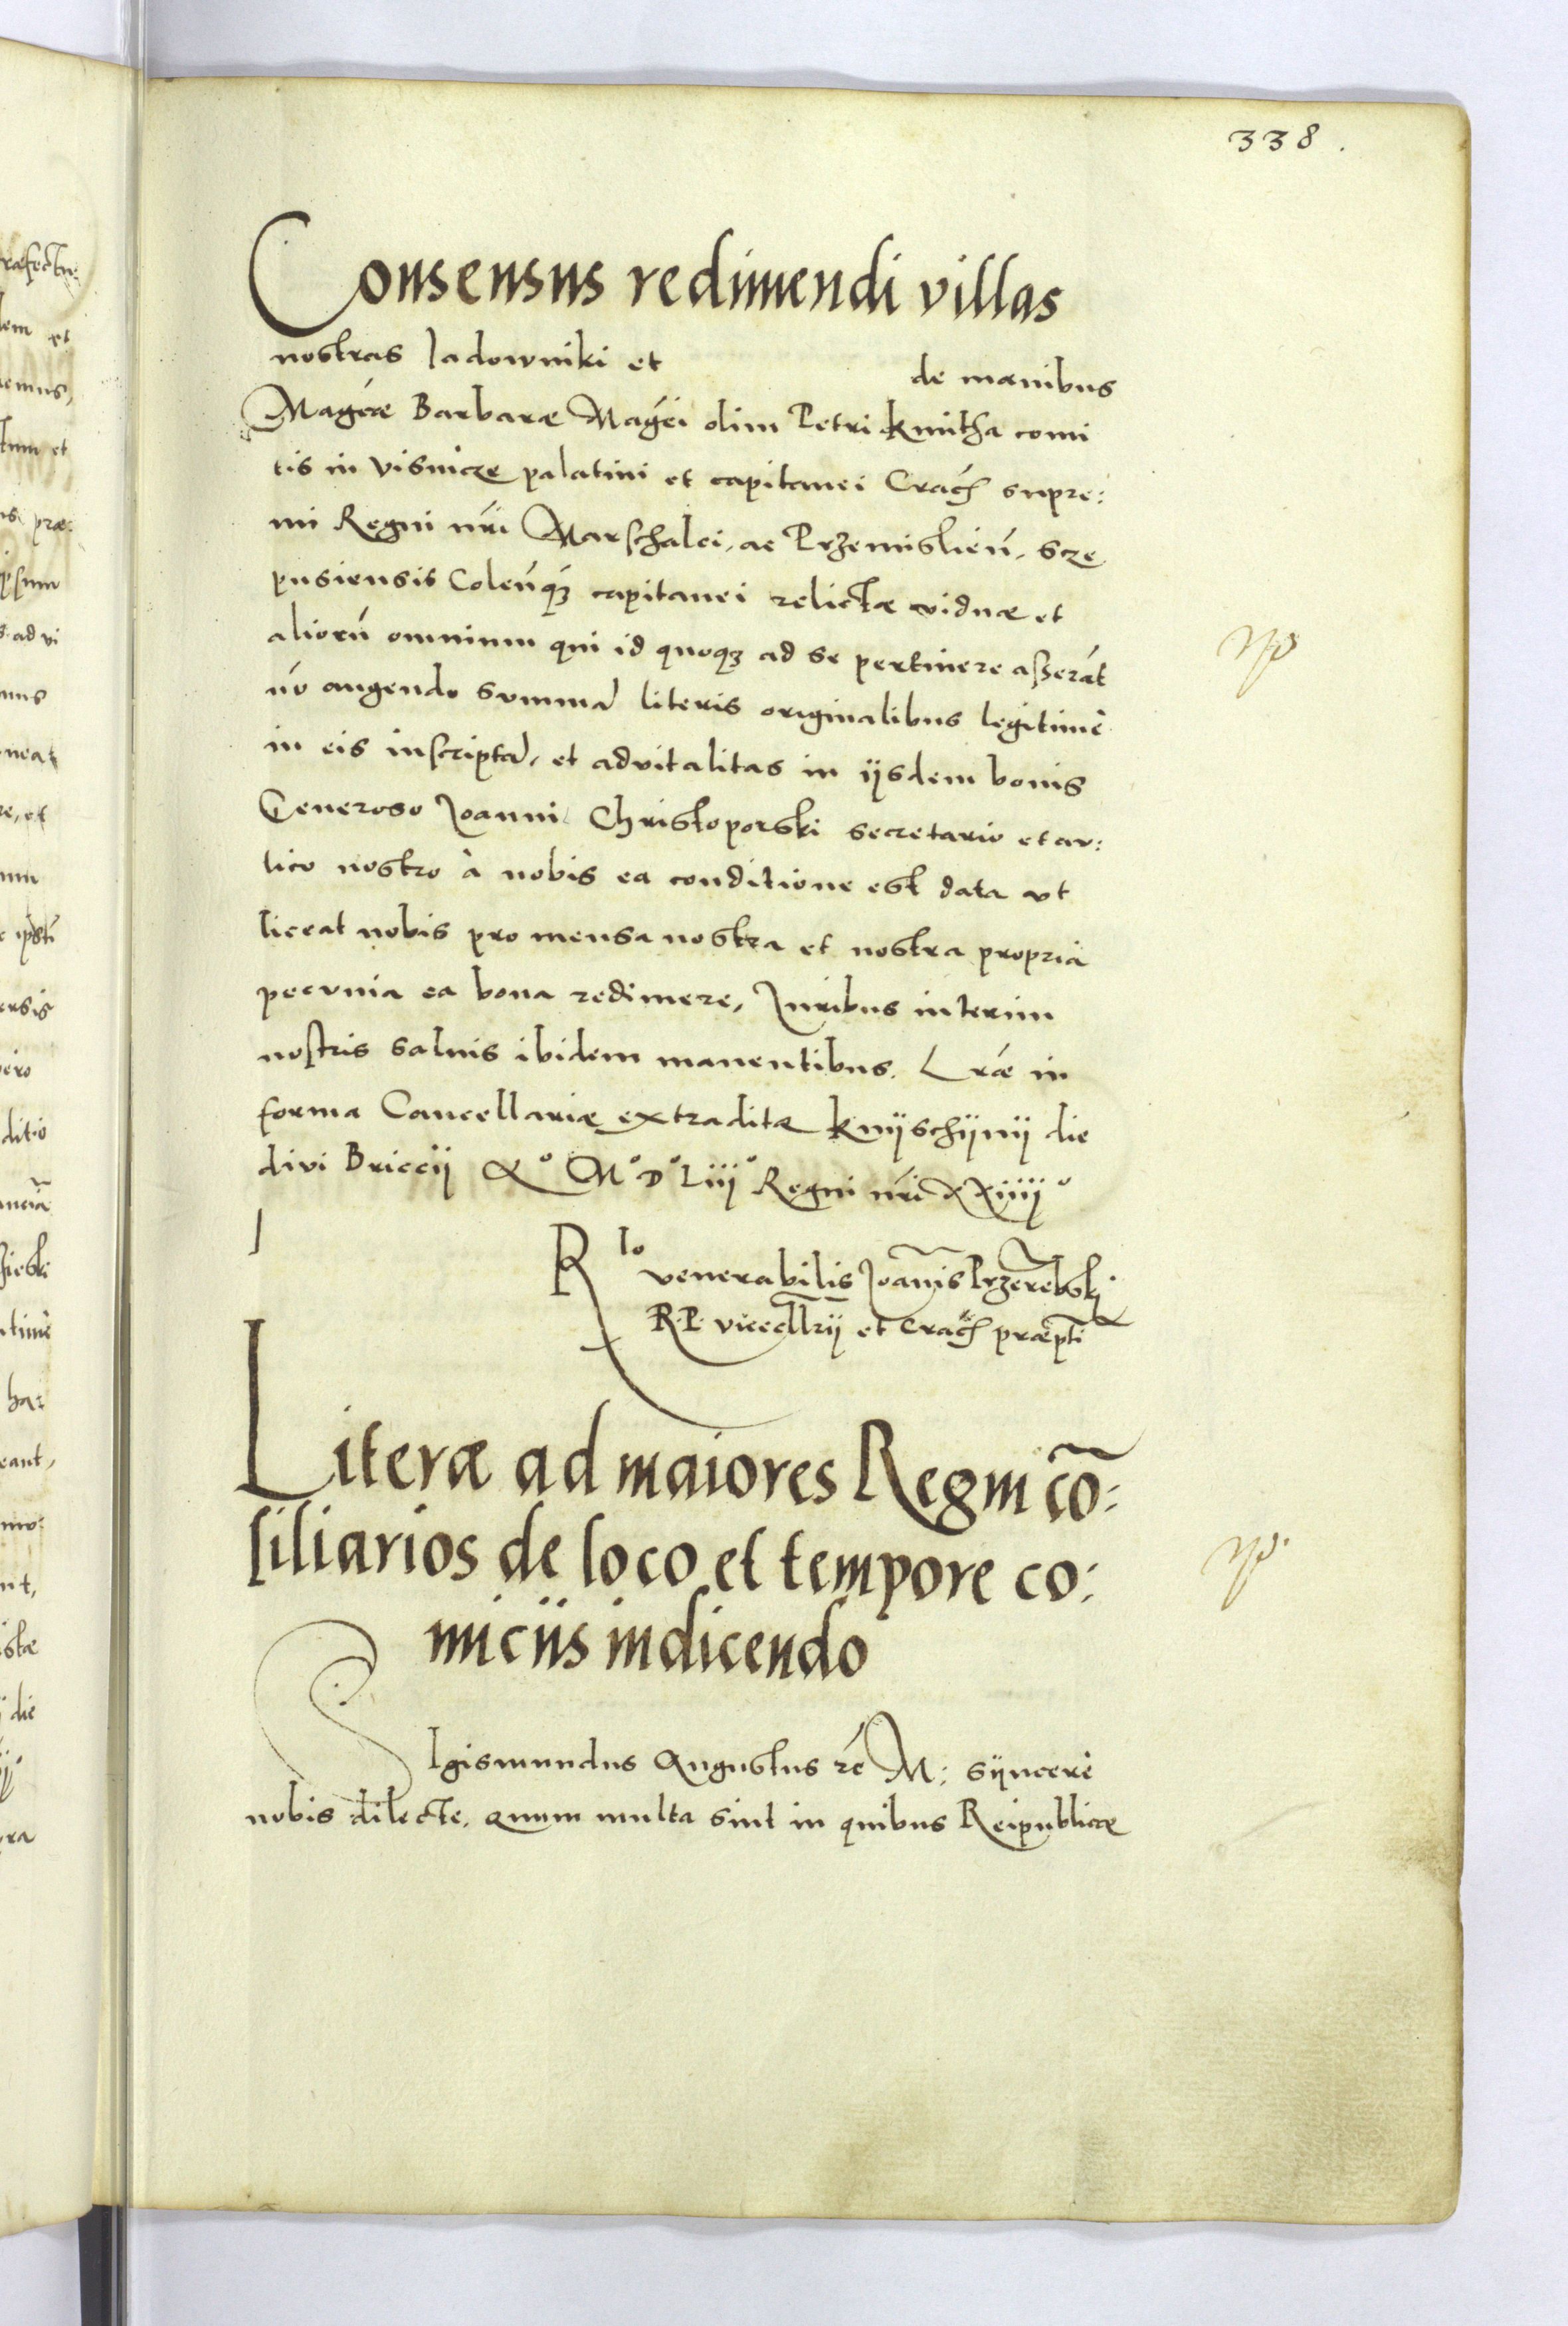 338.
Consensus redimendi villas
nostras Iadowniki et de manibus
Magcæ Barbaræ Magci olim Petri Kmitha comi
tis in Visnicze palatini et capitanei Crach supre:
mi Regni nri Marschalci, ac Przemislien, Scze
pusiensis Colenqȝ capitanei relictæ viduæ et
aliorū omnium qui id quoqȝ ad se pertinere asserāt
nō augendo summā literis originalibus legitimè
in eis inscriptā, et advitalitas in ijsdem bonis
Generoso Joanni Christoporski secretario et au:
lico nostro à nobis ea conditione est data ut
liceat nobis pro mensa nostra et nostra propria
pecunia ea bona redimere, Juribus interim
nostris salvis ibidem manentibus. Lræ in
forma Cancellariæ extraditæ Knyschÿnÿ die
divi Briccij Aº Mº Dº Liijº Regni nri XXiiijº
Rlo venerabilis Joānis Przerēbski
R.P. vicecllrij et Crach præpti
Literæ ad maiores Regni cō:
siliarios de loco et tempore co:
miciis indicendo
Sigismundus Augustus rc M: sÿncerè
nobis dilecte. Quum multa sint in quibus Reipublicæ